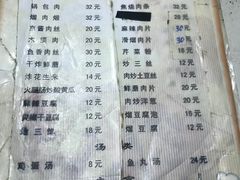 锅包肉 32元
熘肉熘 32元
京酱肉丝 28元
木须肉 20元
鱼香肉丝 28元
干炸鲜蘑 20元
沫花生米 14元
火腿汤炒酸黄瓜 20元
麻辣豆腐 12元
黄椒干豆腐 12元
地三鲜 18元
汤
鸡蛋汤 8元
鱼烧肉条
麻辣肉片 30元
滑熘肉片 30元
芹菜粉 16元
炒三丝 18元
肉炒土豆丝 18元
鲜蘑肉片 20元
肉炒洋葱 20元
肉熘豆腐 18元
熘豆腐 12元
类
鱼丸汤 24元